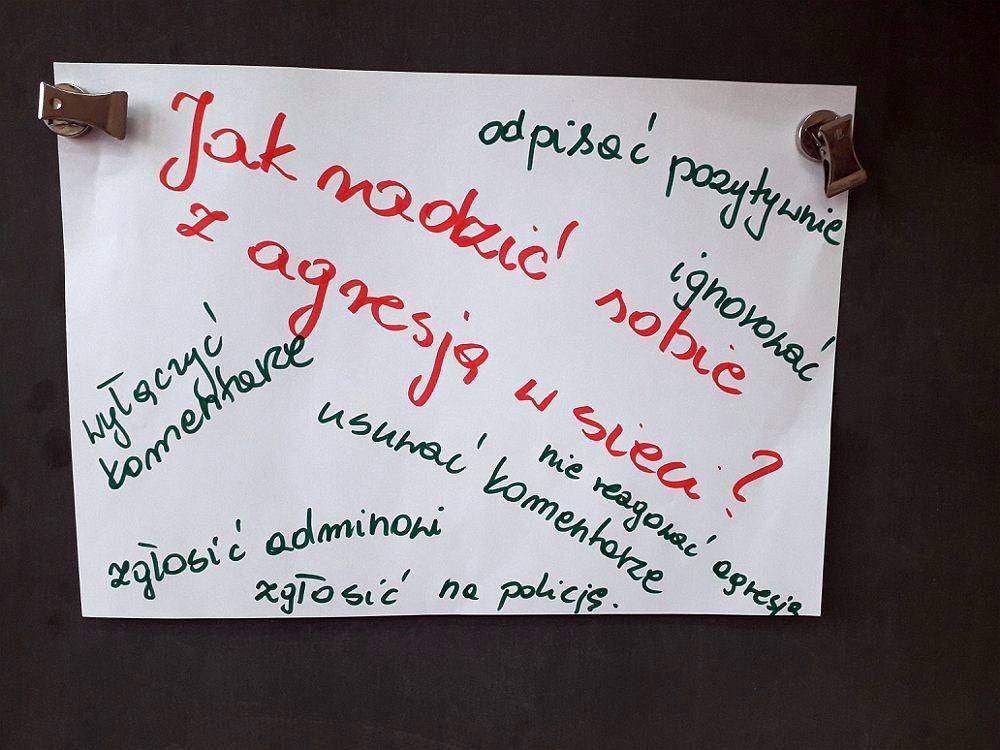 Jak radzić sobie
z agresją w sieci?
odpisać pozytywnie
ignorować
wyłączyć
komentarze
usuwać komentarze
nie reagować agresją
zgłosić adminowi
zgłosić na policję.